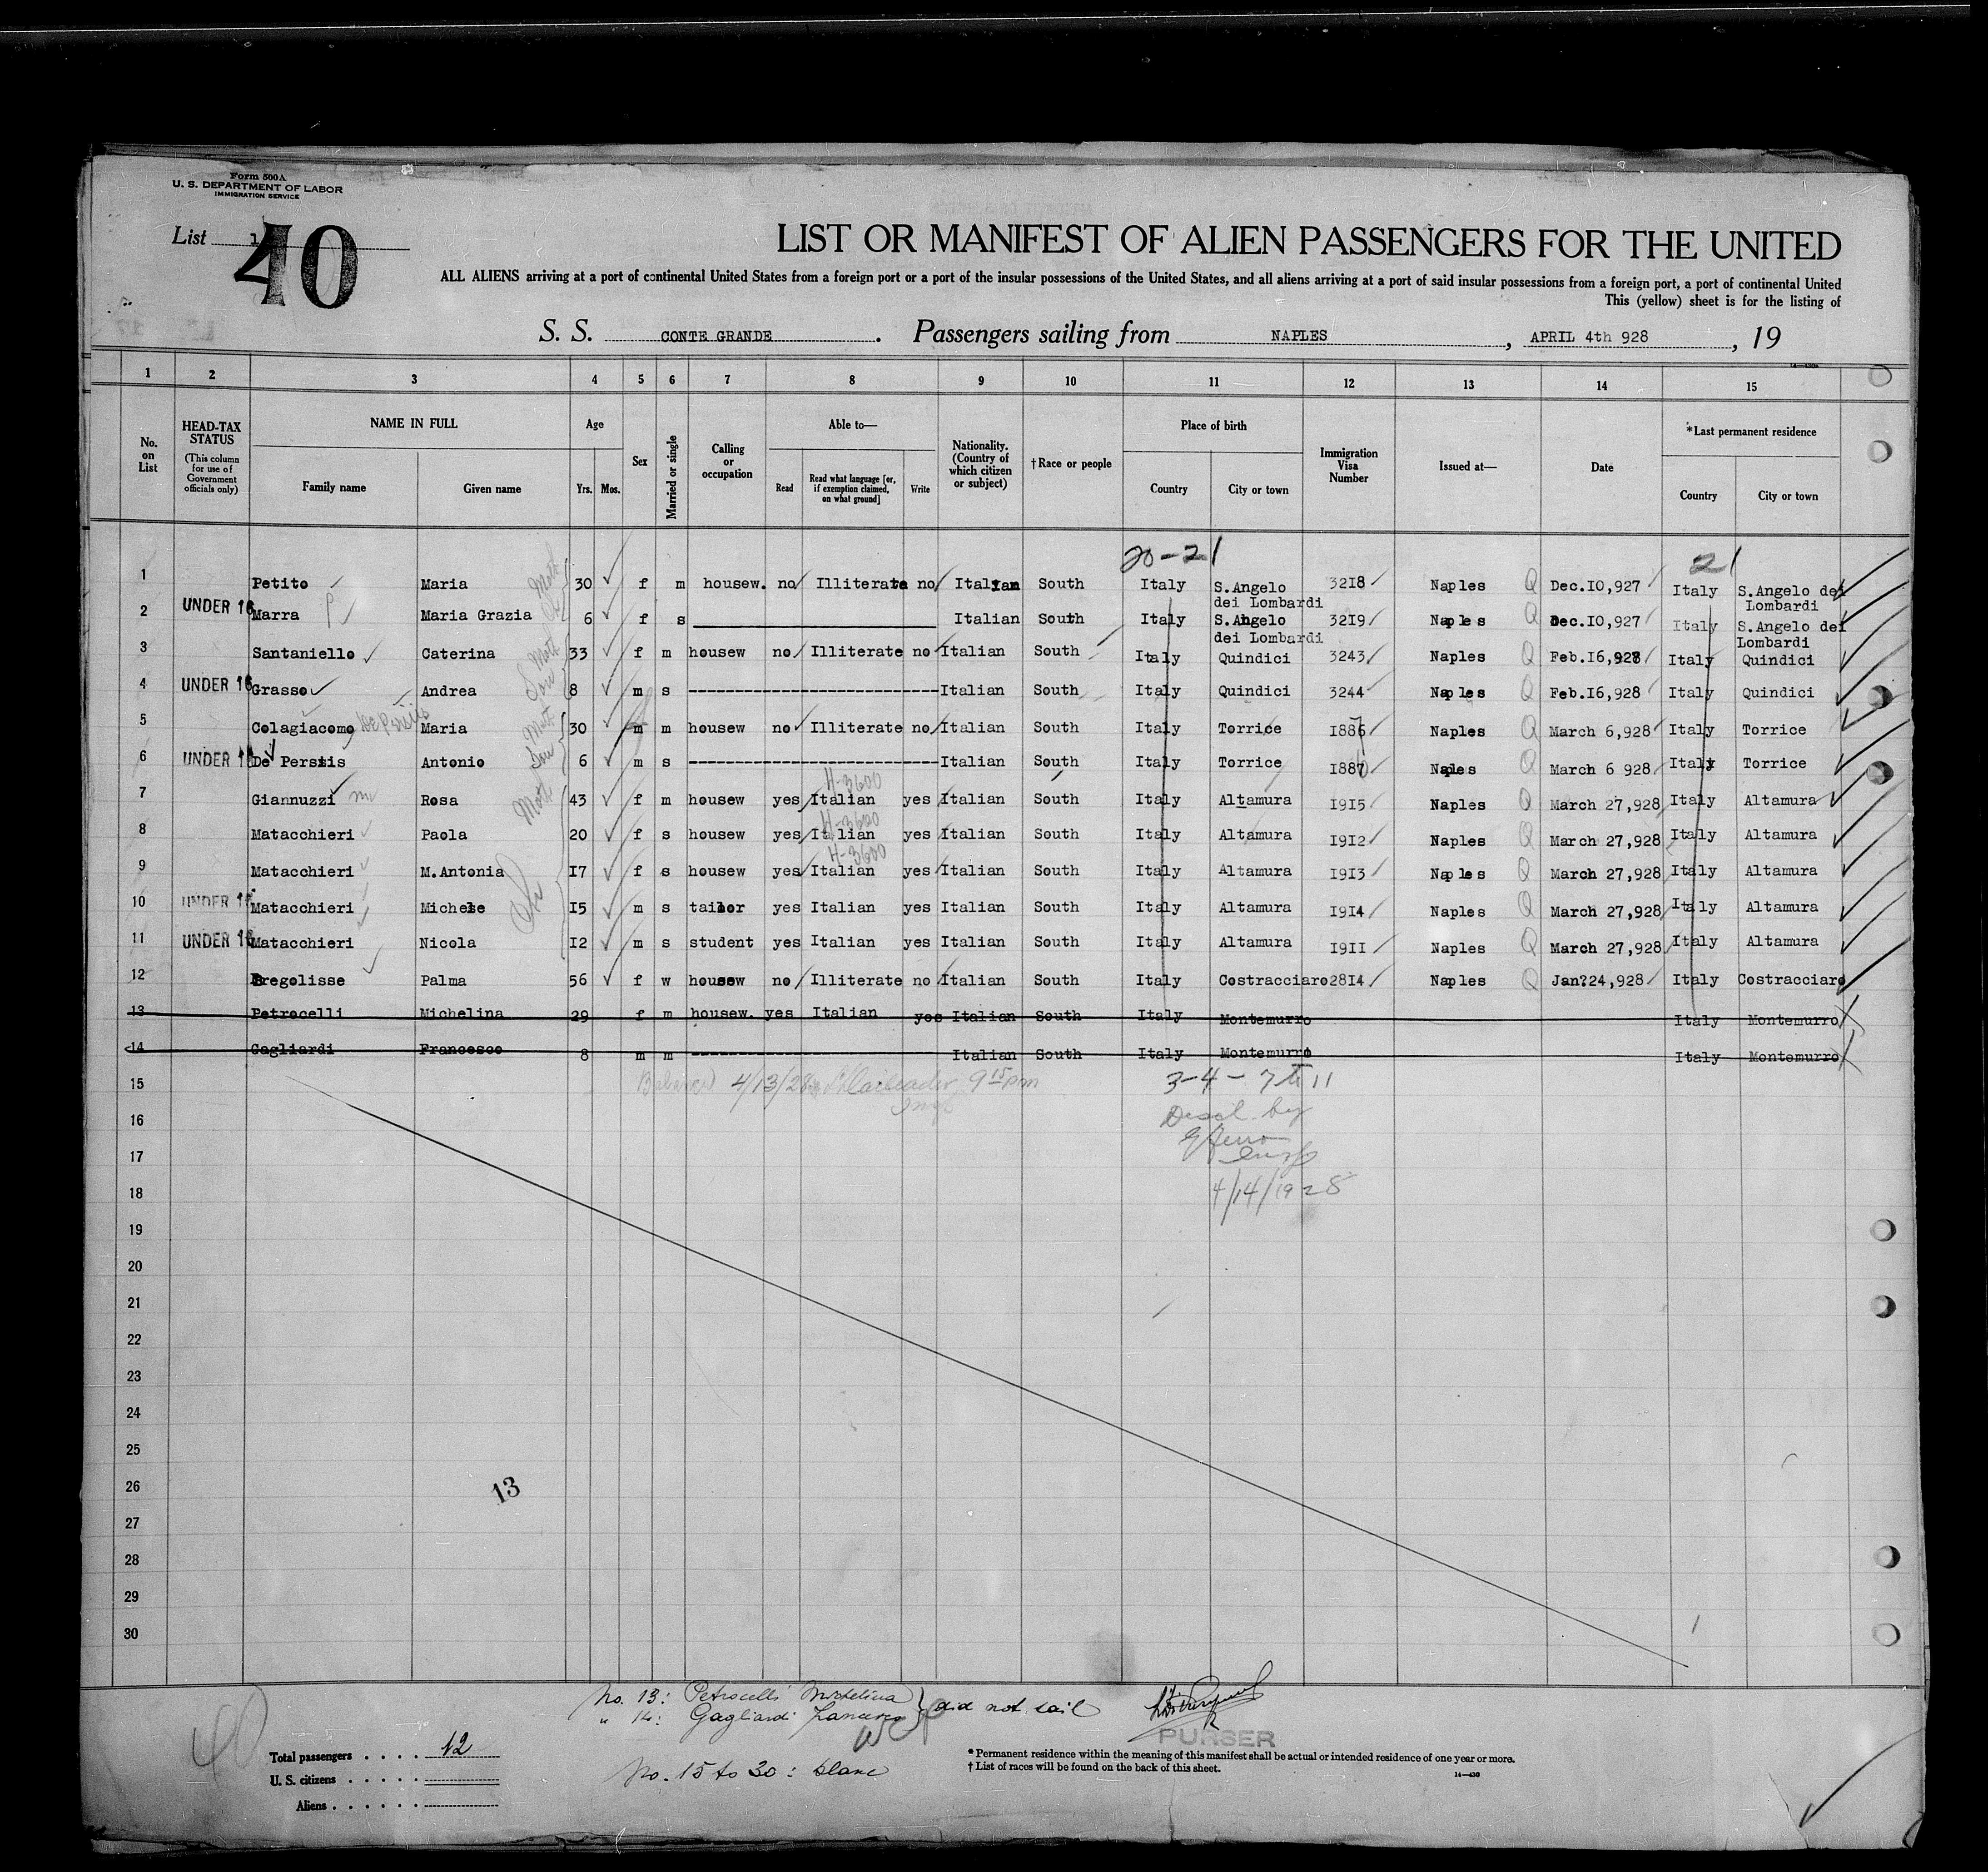 Form 500A
U. S. DEPARTMENT OF LABOR
IMMIGRATION SERVICE
List 1
40
LIST OR MANIFEST OF ALIEN PASSENGERS FOR THE UNITED
ALL ALIENS arriving at a port of continental United States from a foreign port or a port of the insular possessions of the United States, and all aliens arriving at a port of said insular possessions from a foreign port, a port of continental United
This (yellow) sheet is for the listing of
S. S. CONTE GRANDE. Passengers sailing from NAPLES, APRIL 4th 928, 19
1 2 3 4 5 6 7 8 9 10 11 12 13 14 15
No. on List
HEAD-TAX STATUS
(This column for use of Government officials only)
NAME IN FULL
Family name
Given name
Age
Yrs. Mos.
Sex
Married or single
Calling or occupation
Able to—
Read
Read what language [or, if exemption claimed, on what ground]
Write
Nationality. (Country of which citizen or subject)
† Race or people
Place of birth
Country
City or town
Immigration Visa Number
Issued at—
Date
*Last permanent residence
Country
City or town
20-21 21
1 Petito Maria Moth 30 f m housew. no Illiterate no Italian South Italy S.Angelo dei Lombardi 3218 Naples Q Dec.10,927 Italy S.Angelo dei Lombardi
2 UNDER 16 Marra Maria Grazia 6 f s Italian South Italy S.Angelo dei Lombardi 3219 Naples Q Dec.10,927 Italy S.Angelo dei Lombardi
3 Santaniello Caterina Moth 33 f m housew no Illiterate no Italian South Italy Quindici 3243 Naples Q Feb.16,928 Italy Quindici
4 UNDER 16 Grasso Andrea Son 8 m s Italian South Italy Quindici 3244 Naples Q Feb.16,928 Italy Quindici
5 Colagiacomo De Persiis Maria Moth 30 m m housew no Illiterate no Italian South Italy Torrice 1887 Naples Q March 6,928 Italy Torrice
6 UNDER 16 De Persiis Antonio Son 6 m s Italian South Italy Torrice 1886 Naples Q March 6 928 Italy Torrice
H-3600
7 Giannuzzi m Rosa Moth 43 f m housew yes Italian yes Italian South Italy Altamura 1915 Naples Q March 27,928 Italy Altamura
H-3600
8 Matacchieri Paola 20 f s housew yes Italian yes Italian South Italy Altamura 1912 Naples Q March 27,928 Italy Altamura
H-3600
9 Matacchieri M.Antonia 17 f s housew yes Italian yes Italian South Italy Altamura 1913 Naples Q March 27,928 Italy Altamura
10 UNDER 16 Matacchieri Michele 15 m s tailor yes Italian yes Italian South Italy Altamura 1914 Naples Q March 27,928 Italy Altamura
11 UNDER 16 Matacchieri Nicola 12 m s student yes Italian yes Italian South Italy Altamura 1911 Naples Q March 27,928 Italy Altamura
12 Bregolisse Palma 56 f w housew no Illiterate no Italian South Italy Costracciaro 2814 Naples Q Jan?24,928 Italy Costracciaro
13 Petrocelli Michelina 29 f m housew. yes Italian yes Italian South Italy Montemurro Italy Montemurro
14 Gagliardi Francesco 8 m m Italian South Italy Montemurro Italy Montemurro
15 4/13/28 9 15 pm 3-4-7 to 11
16
17
18 4/14/1928
19
20
21
22
23
24
25
26 13
27
28
29
30
No. 13: Petrocelli Michelina
" 14: Gagliardi Francesco } did not sail
PURSER
40
Total passengers . . . . 12
U. S. citizens . . . . .
Aliens . . . . . .
No. 15 to 30: blanc
* Permanent residence within the meaning of this manifest shall be actual or intended residence of one year or more.
† List of races will be found on the back of this sheet.
14—430